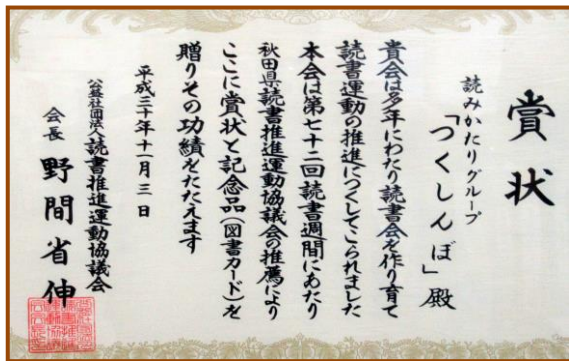 賞状
読みかたりグループ
「つくしんぼ」殿
貴会は多年にわたり読書会を作り育て
読書運動の推進につくしてこられました
本会は第七十二回読書週間にあたり
秋田県読書推進運動協議会の推薦により
ここに賞状と記念品(図書カード)を
贈りその功績をたたえます
平成三十年十一月三日
公益社団法人読書推進運動協議会
会長 野間省伸